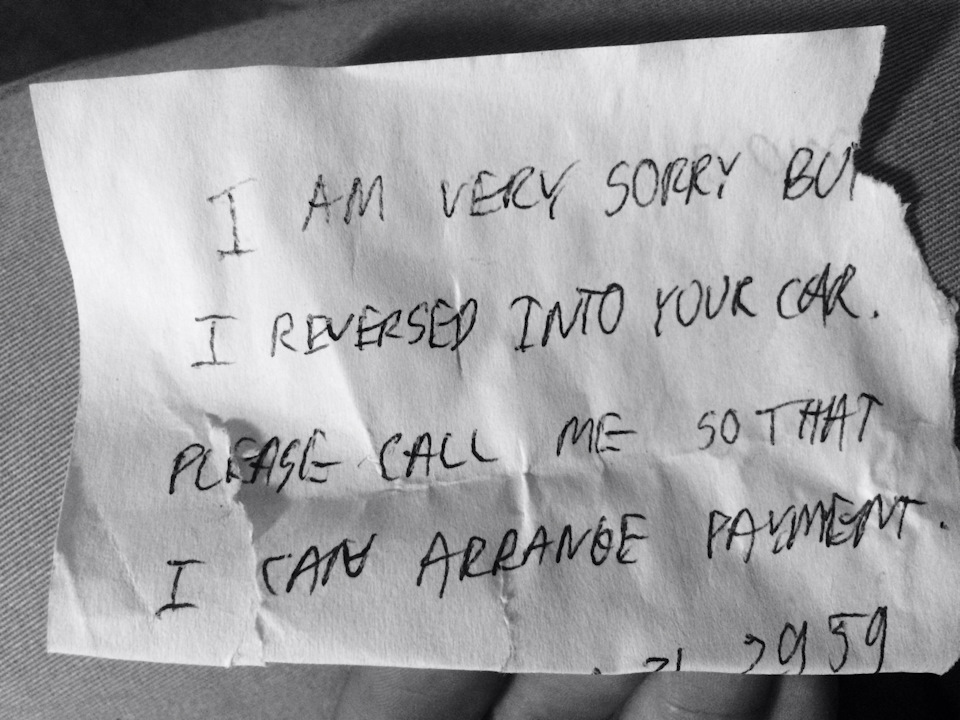 I AM VERY SORRY BUT
I REVERSED INTO YOUR CAR.
PLEASE CALL ME SO THAT
I CAN ARRANGE PAYMENT.
959